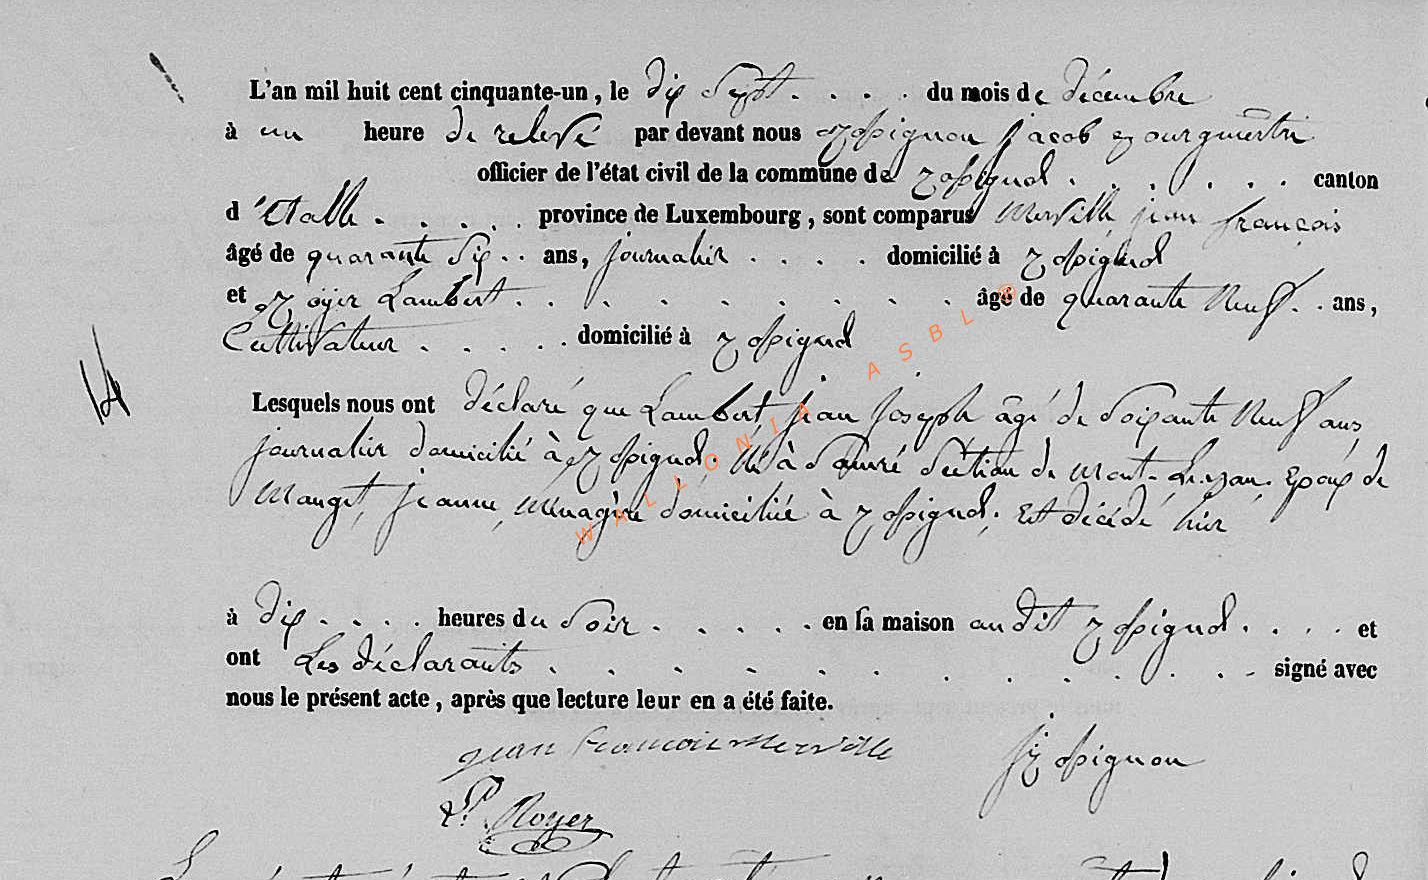 L'an mil huit cent cinquante-un, le dix Sept . . . . du mois de décembre
à un heure de relevé par devant nous Rossignon jacob Bourgmestre
officier de l'état civil de la commune de Rossignol . . . . . . canton
d'Etalle . . . . . province de Luxembourg, sont comparus Merville jean françois
âgé de quarante Six . . ans, journalier . . . . domicilié à Rossignol
et Royer Lambert . . . . . . . . . âgé de quarante Neuf . . ans,
Cultivateur . . . . . domicilié à Rossignol
14
Lesquels nous ont déclaré que Lambert, jean joseph âgé de Soixante Neuf ans,
journalier domicilié à Rossignol. Né à Section de Mont- Epoux de
Manget, jeanne, Ménagère domiciliée à Rossignol. Est décédé hier
à dix . . . . heures du Soir . . . . . en sa maison au dit Rossignol . . . . et
ont Les déclarants . . . . . . . . . . . signé avec
nous le présent acte, après que lecture leur en a été faite.
jean francois Merville J Rossignon
L. Royer
WALLONIA ASBL ©